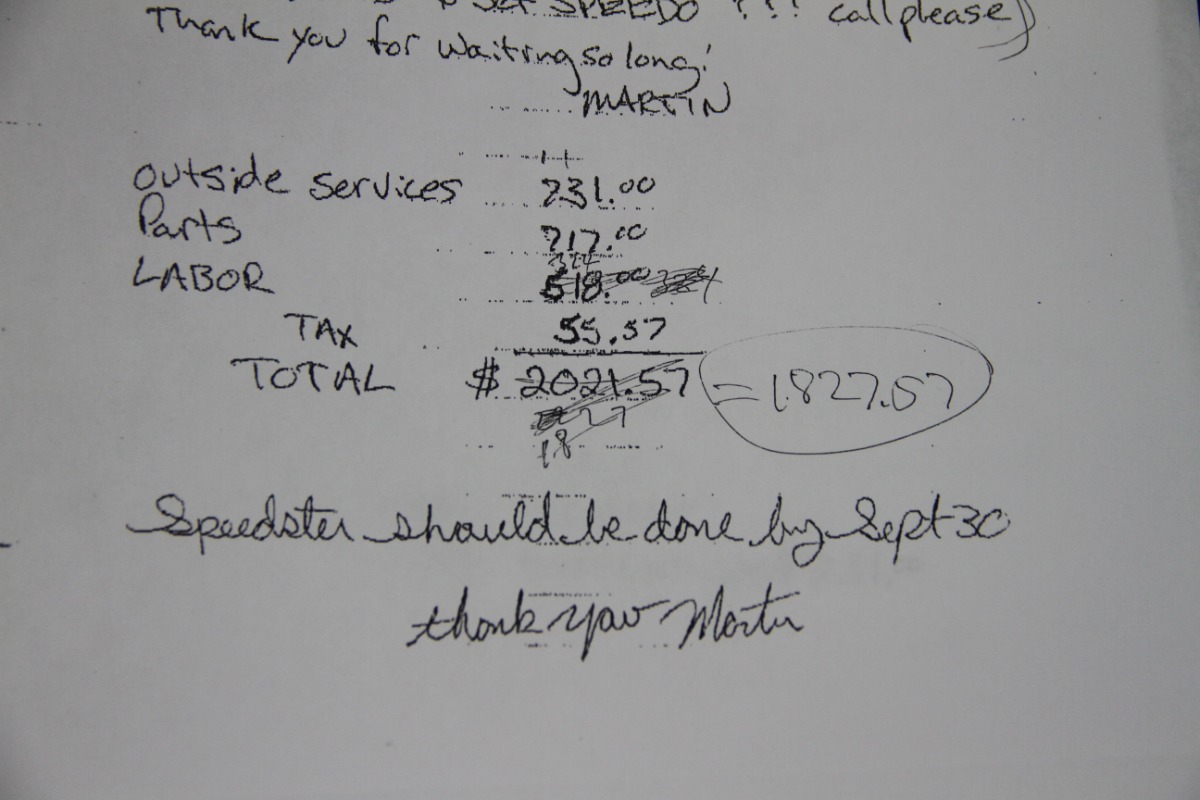 set SPEEDO ??! call please)
Thank you for waiting so long!
MARTIN
outside services 231.00
Parts 717.00
LABOR 518.00
TAX 55.57
TOTAL $ 2021.57 = 1827.57
18
Speedster should be done by Sept 30
thank you Martin